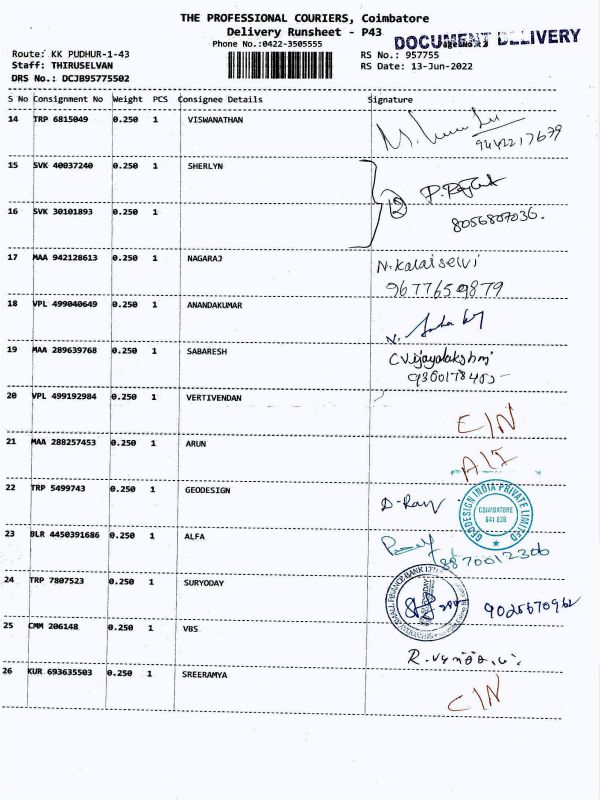 THE PROFESSIONAL COURIERS, Coimbatore
Delivery Runsheet - P43
DOCUMENT DELIVERY
Phone No.:0422-3505555
Route: KK PUDHUR-1-43
RS No.: 957755
Staff: THIRUSELVAN
RS Date: 13-Jun-2022
DRS No.: DCJB95775502
S No Consignment No Weight PCS Consignee Details Signature
14 TRP 6815049 0.250 1 VISWANATHAN
9442217679
15 SVK 40037240 0.250 1 SHERLYN
16 SVK 30101893 0.250 1
8056807036.
17 MAA 942128613 0.250 1 NAGARAJ N.Kalaiselvi
9677659879
18 VPL 499040649 0.250 1 ANANDAKUMAR
19 MAA 289639768 0.250 1 SABARESH C Vijayalakshmi
20 VPL 499192984 0.250 1 VERTIVENDAN
21 MAA 288257453 0.250 1 ARUN
22 TRP 5499743 0.250 1 GEODESIGN
GEODESIGN INDIA PRIVATE LIMITED
COIMBATORE
641 038
23 BLR 4450391686 0.250 1 ALFA
8870012306
24 TRP 7807523 0.250 1 SURYODAY
25 CMM 206148 0.250 1 VBS
26 KUR 693635503 0.250 1 SREERAMYA